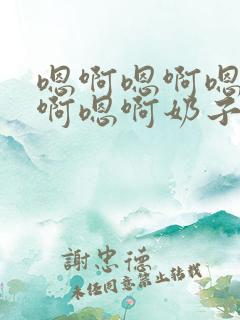 嗯啊嗯啊嗯
啊嗯啊奶子
謝忠德
未经同意禁止转载